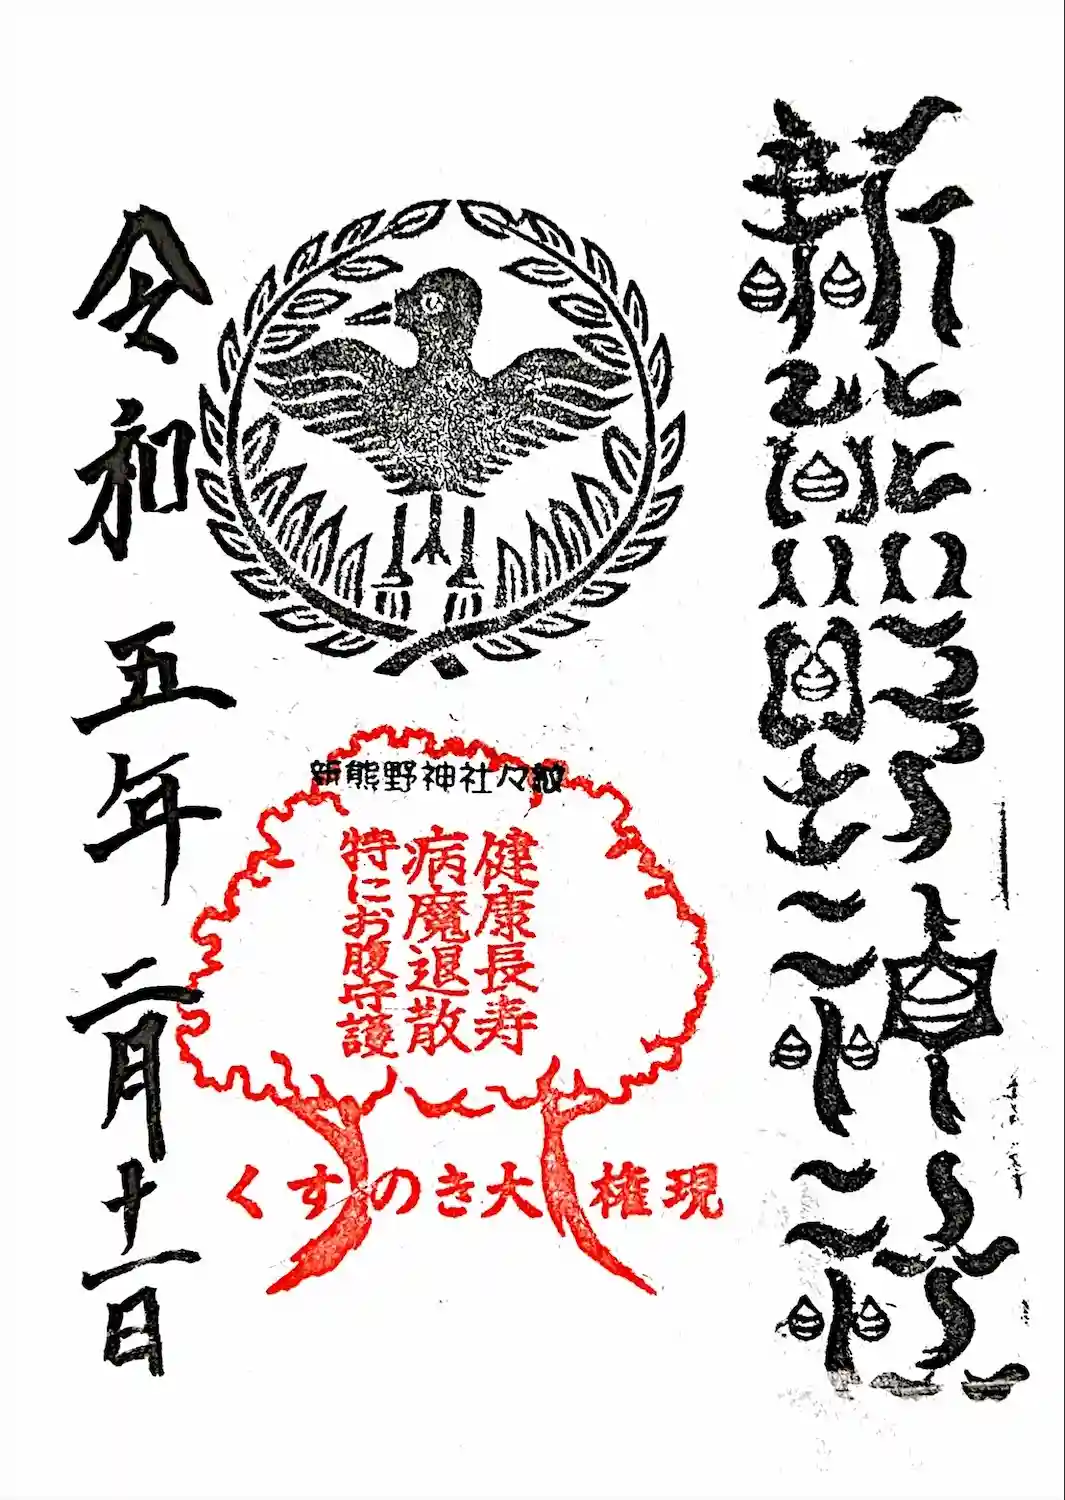 新熊野神社
新熊野神社々紋
健康長寿
病魔退散
特にお腹守護
くすのき大権現
令和五年二月十一日